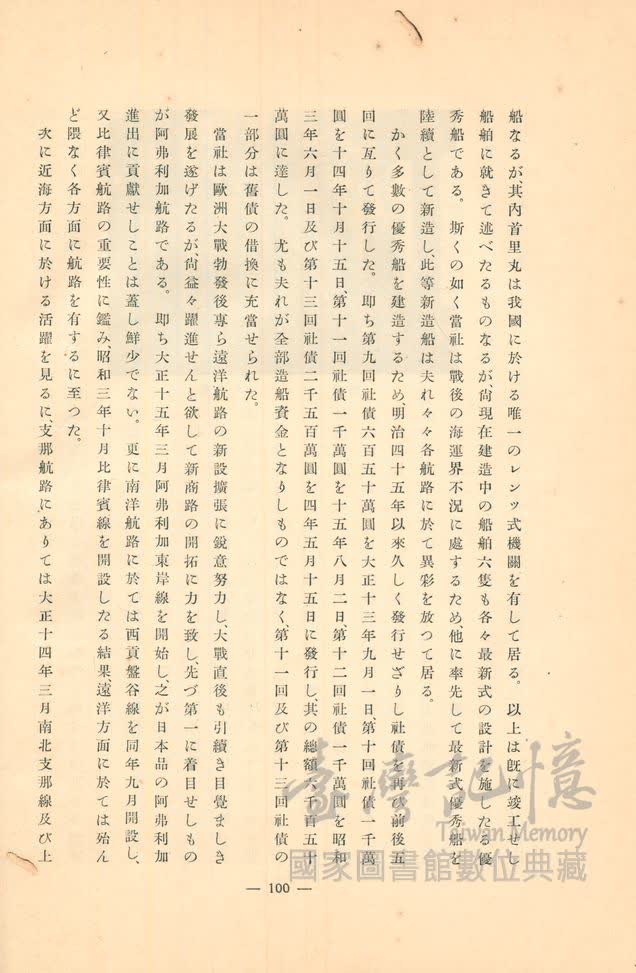 船なるが其內首里丸は我國に於ける唯一のレンツ式機關を有して居る。 以上は旣に竣工せし
船舶に就きて述べたるものなるが、尙現在建造中の船舶六隻も各々最新式の設計を施したる優
秀船である。 斯くの如く當社は戰後の海運界不況に處するため、他に率先して最新式優秀船を
陸續として新造し、此等新造船は夫れ々々各航路に於て異彩を放つて居る。
かく多數の優秀船を建造するため、明治四十五年以來久しく發行せざりし社債を再び前後五
回に亙りて發行した。 卽ち第九回社債六百五十萬圓を大正十三年九月一日、第十回社債一千萬
圓を十四年十月十五日、第十一回社債一千萬圓を十五年八月二日、第十二回社債一千萬圓を昭和
三年六月一日及び第十三回社債二千五百萬圓を四年五月十五日に發行し、其の總額六千百五十
萬圓に達した。 尤も夫れが全部造船資金となりしものではなく、第十一回及び第十三回社債の
一部分は舊債の借換に充當せられた。
當社は歐洲大戰勃發後專ら遠洋航路の新設擴張に銳意努力し、大戰直後も引續き目覺ましき
發展を遂げたるが、尙益々躍進せんと欲して新商路の開拓に力を致し、先づ第一に着目せしもの
が阿弗利加航路である。 卽ち大正十五年三月阿弗利加東岸線を開始し、之が日本品の阿弗利加
進出に貢獻せしことは蓋し鮮少でない。 更に南洋航路に於ては西貢盤谷線を同年九月開設し、
又比律賓航路の重要性に鑑み、昭和三年十月比律賓線を開設したる結果遠洋方面に於ては殆ん
ど隈なく各方面に航路を有するに至つた。
次に近海方面に於ける活躍を見るに、支那航路にありては大正十四年三月南北支那線及び上
— 100 —
臺灣記憶
Taiwan Memory
國家圖書館數位典藏